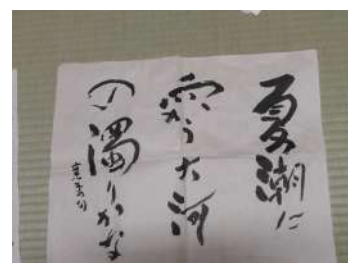 夏潮に
向かう大河
の濁りかな